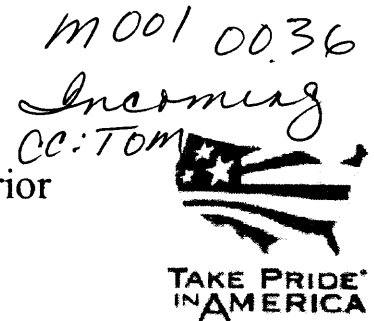 M001 00.36
Incoming
CC: TOM
rior
TAKE PRIDE®
IN AMERICA